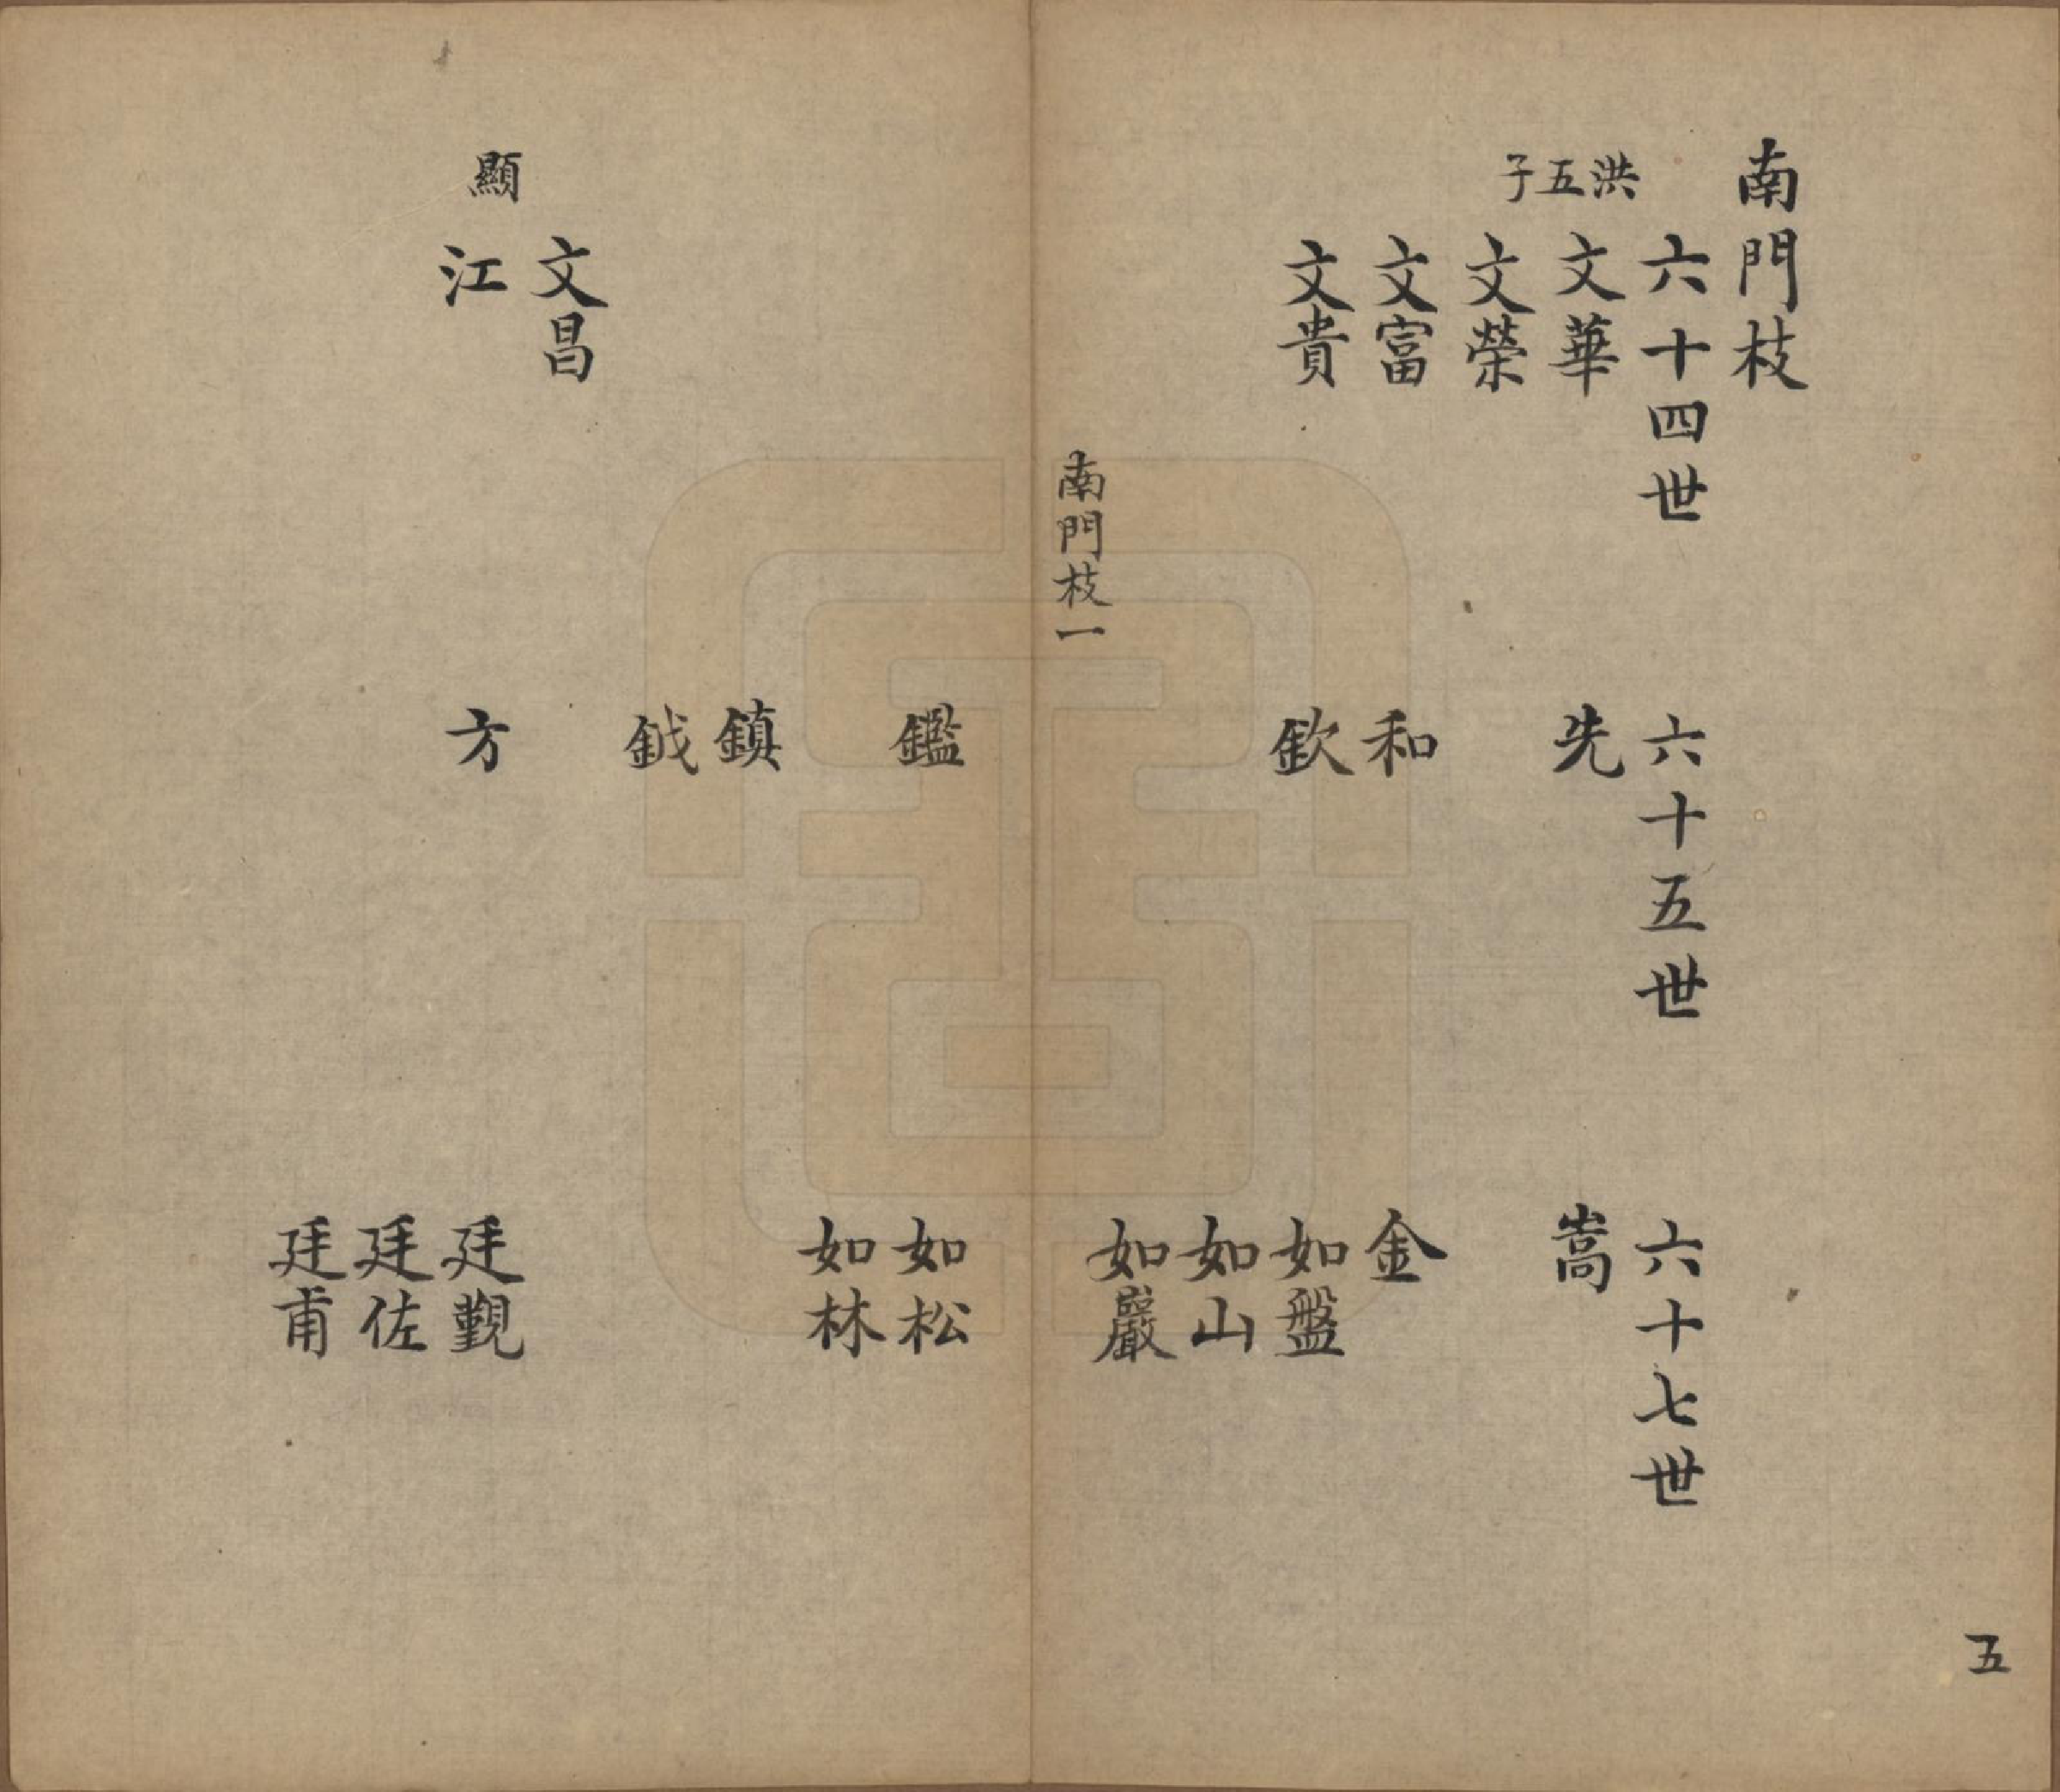 南門枝
六十四世
六十五世
六十七世
洪五子
文華
先
嵩
文榮
文富
和
金
文貴
欽
如盤
如山
如巖
南門枝一
鑑
如松
如林
鎮
鉞
文昌
顯
江
方
廷觀
廷佐
廷甫
五